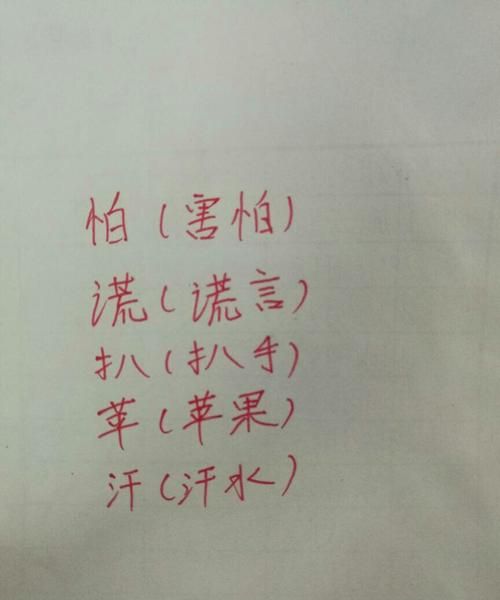 怕(害怕)
谎(谎言)
扒(扒手)
苹(苹果)
汗(汗水)